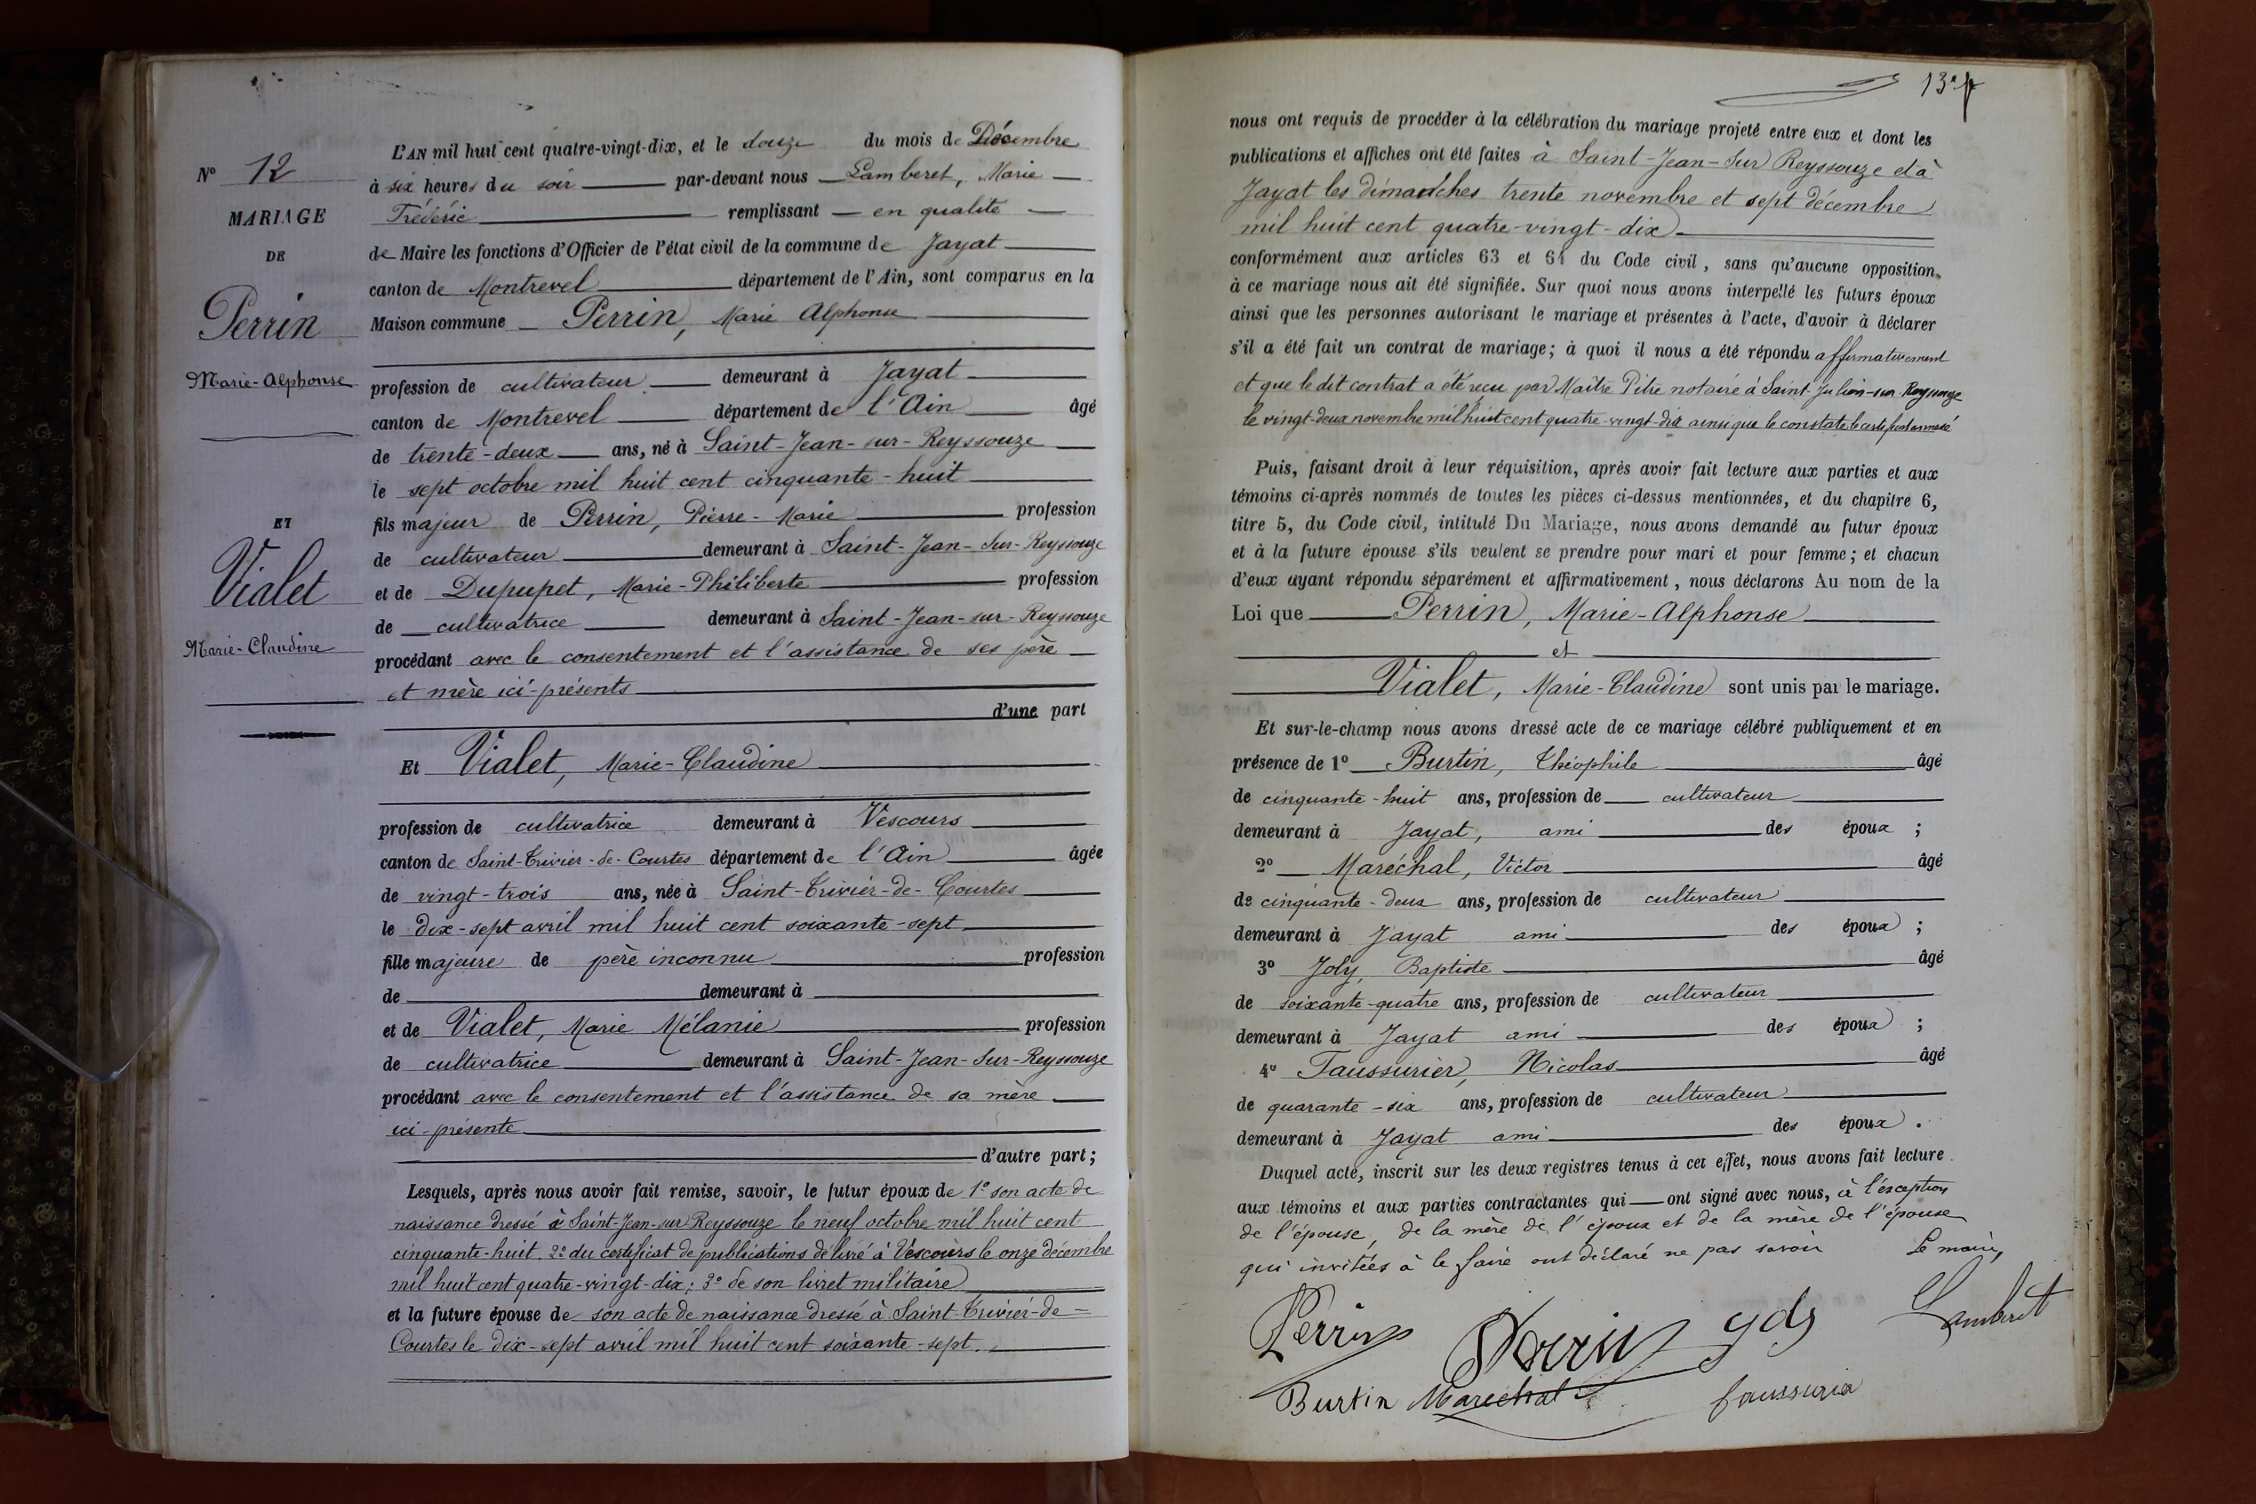 N° 12
MARIAGE
DE
Perrin
Marie-Alphonse
ET
Vialet
Marie-Claudine
L'AN mil huit cent quatre-vingt-dix, et le douze du mois de Décembre
à six heures du soir par-devant nous Lamberet, Marie
Frédéric remplissant en qualité
de Maire les fonctions d'Officier de l'état civil de la commune de Jayat
canton de Montrevel département de l'Ain, sont comparus en la
Maison commune Perrin, Marie Alphonse
profession de cultivateur demeurant à Jayat
canton de Montrevel département de l'Ain âgé
de trente-deux ans, né à Saint-Jean-sur-Reyssouze
le sept octobre mil huit cent cinquante-huit
fils majeur de Perrin, Pierre-Marie profession
de cultivateur demeurant à Saint-Jean-Sur-Reyssouze
et de Dupupet, Marie-Philiberte profession
de cultivatrice demeurant à Saint-Jean-sur-Reyssouze
procédant avec le consentement et l'assistance de ses père
et mère ici-présents
d'une part
Et Vialet, Marie-Claudine
profession de cultivatrice demeurant à Vescours
canton de Saint-Trivier-de-Courtes département de l'Ain âgée
de vingt-trois ans, née à Saint-Trivier-de-Courtes
le dix-sept avril mil huit cent soixante-sept
fille majeure de père inconnu profession
de demeurant à
et de Vialet, Marie Mélanie profession
de cultivatrice demeurant à Saint-Jean-Sur-Reyssouze
procédant avec le consentement et l'assistance de sa mère
ici-présente
d'autre part;
Lesquels, après nous avoir fait remise, savoir, le futur époux de 1° son acte de
naissance dressé à Saint-Jean-sur Reyssouze le neuf octobre mil huit cent
cinquante-huit. 2° du certificat de publications délivré à Vescours le onze décembre
mil huit cent quatre-vingt-dix; 3° de son livret militaire
et la future épouse de son acte de naissance dressé à Saint-Trivier-de=
Courtes le dix-sept avril mil huit cent soixante-sept.
13
nous ont requis de procéder à la célébration du mariage projeté entre eux et dont les
publications et affiches ont été faites à Saint-Jean-Sur Reyssouze et à
Jayat les dimanches trente novembre et sept décembre
mil huit cent quatre-vingt-dix
conformément aux articles 63 et 64 du Code civil, sans qu'aucune opposition
à ce mariage nous ait été signifiée. Sur quoi nous avons interpellé les futurs époux
ainsi que les personnes autorisant le mariage et présentes à l'acte, d'avoir à déclarer
s'il a été fait un contrat de mariage; à quoi il nous a été répondu affirmativement
et que le dit contrat a été reçu par Maître Pitre notaire à Saint-Julien-sur Reyssouze
le vingt-deux novembre mil huit cent quatre-vingt-dix ainsi que le constate le certificat annexé
Puis, faisant droit à leur réquisition, après avoir fait lecture aux parties et aux
témoins ci-après nommés de toutes les pièces ci-dessus mentionnées, et du chapitre 6,
titre 5, du Code civil, intitulé Du Mariage, nous avons demandé au futur époux
et à la future épouse s'ils veulent se prendre pour mari et pour femme; et chacun
d'eux ayant répondu séparément et affirmativement, nous déclarons Au nom de la
Loi que Perrin, Marie-Alphonse
et
Vialet, Marie-Claudine sont unis par le mariage.
Et sur-le-champ nous avons dressé acte de ce mariage célébré publiquement et en
présence de 1° Burtin, Théophile âgé
de cinquante-huit ans, profession de cultivateur
demeurant à Jayat, ami des époux ;
2° Maréchal, Victor âgé
de cinquante-deux ans, profession de cultivateur
demeurant à Jayat ami des époux ;
3° Joly, Baptiste âgé
de soixante-quatre ans, profession de cultivateur
demeurant à Jayat ami des époux ;
4° Faussurier, Nicolas âgé
de quarante-six ans, profession de cultivateur
demeurant à Jayat ami des époux .
Duquel acte, inscrit sur les deux registres tenus à cet effet, nous avons fait lecture
aux témoins et aux parties contractantes qui ont signé avec nous, à l'exception
de l'épouse, de la mère de l'époux et de la mère de l'épouse
qui invitées à le faire ont déclaré ne pas savoir Le maire,
Perrin Perrin Lamberet
Burtin Maréchal faussurier